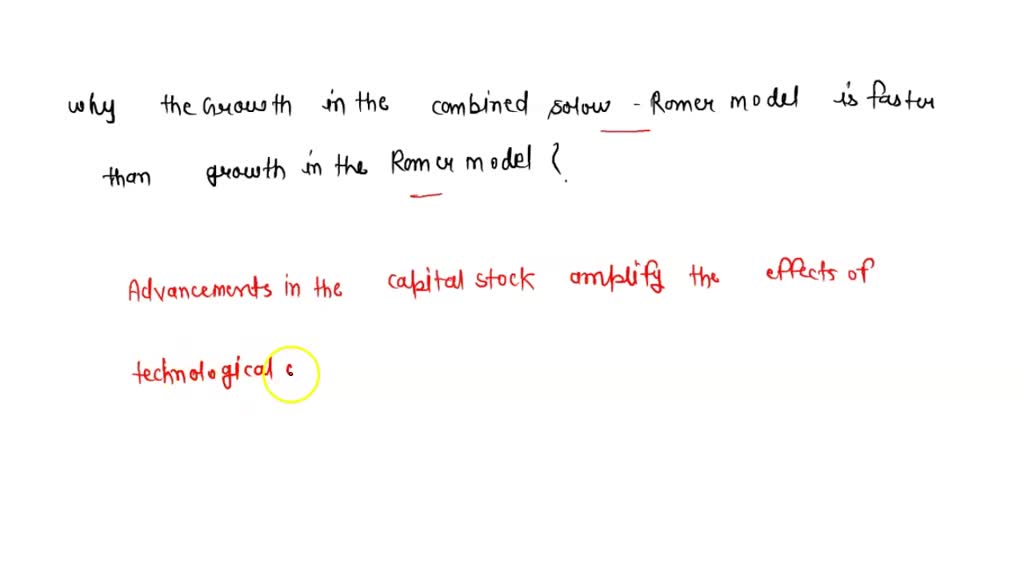 why the Growth in the combined solow - Romer model is faster
than growth in the Romer model ?
Advancements in the capital stock amplify the effects of
technological